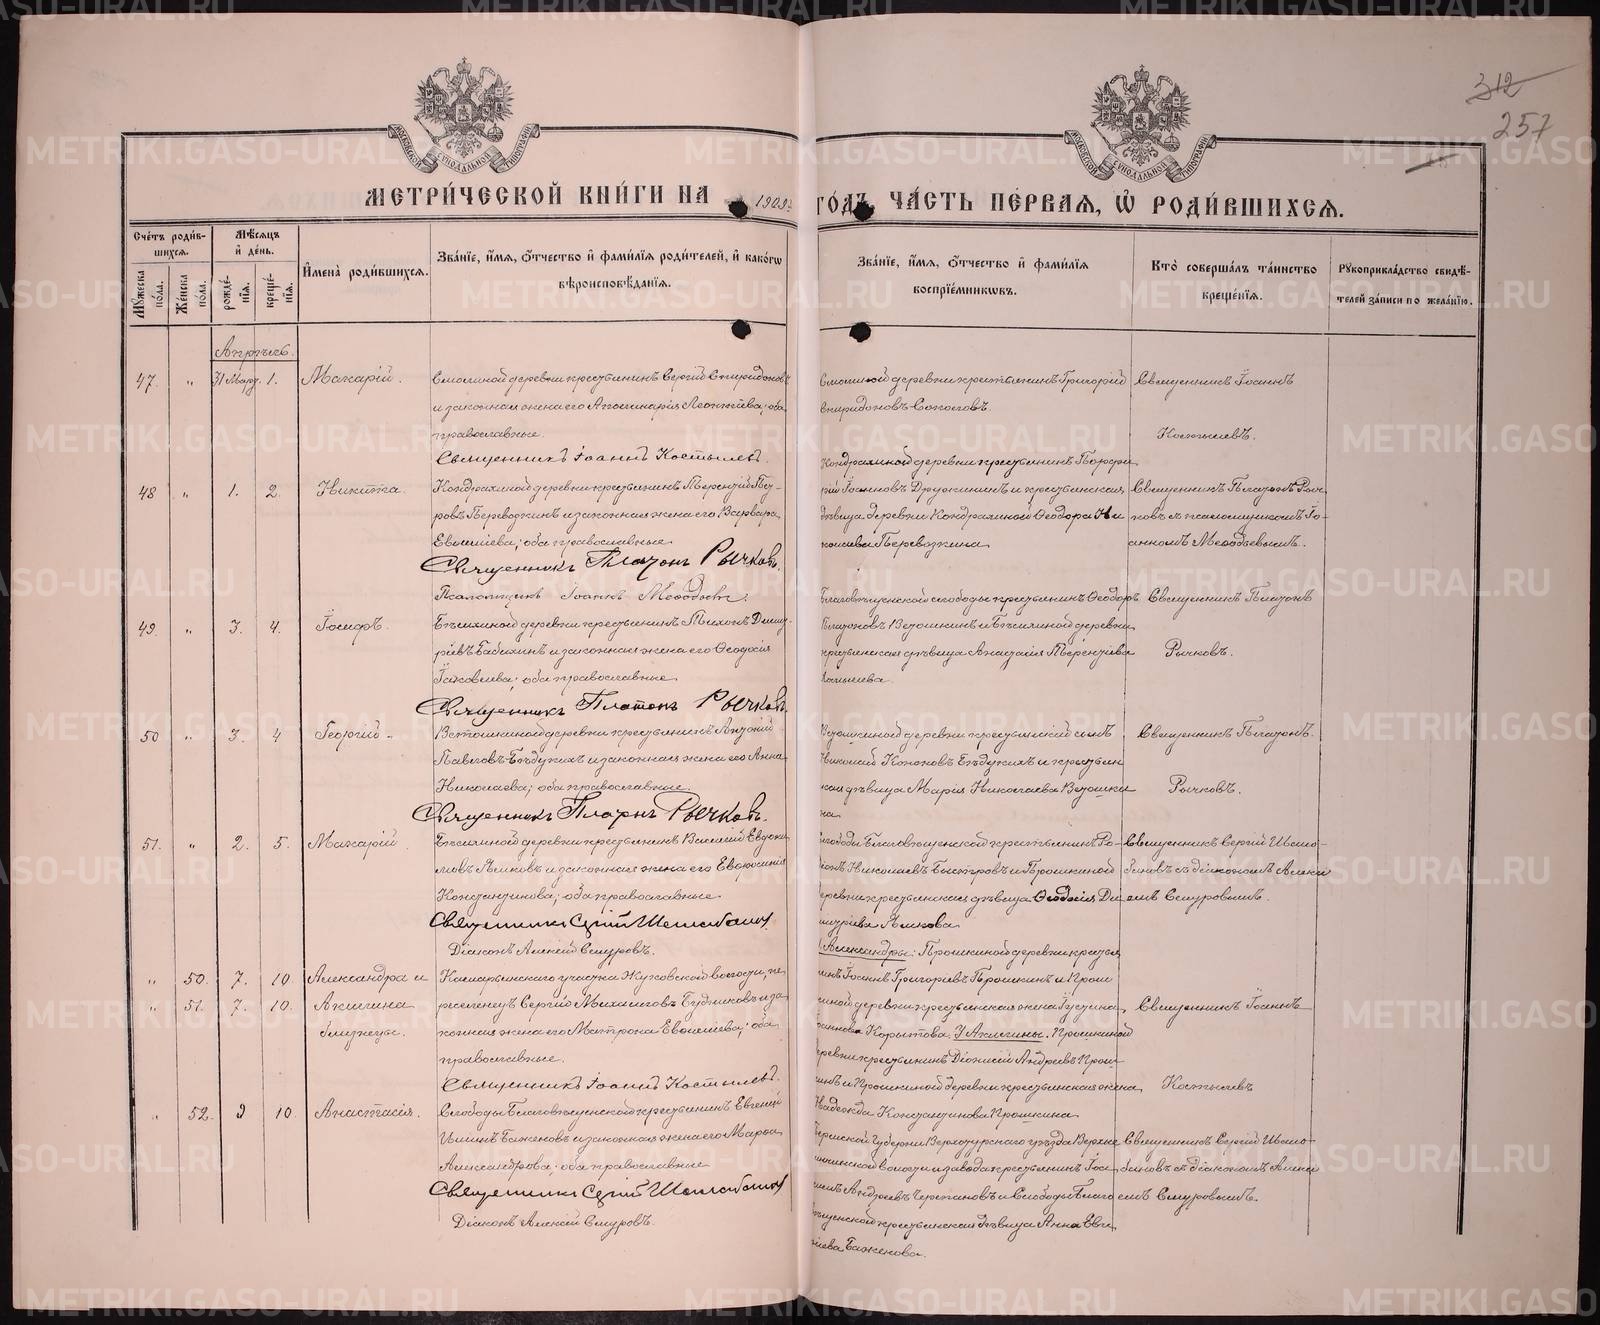 312
257
МОСКОВСКОЙ СѴНОДАЛЬНОЙ ТИПОГРАФІИ
МОСКОВСКОЙ СѴНОДАЛЬНОЙ ТИПОГРАФІИ
МЕТРИ́ЧЕСКОЙ КНИ́ГИ НА 1909 ГО́ДЪ, ЧА́СТЬ ПЕ́РВАЯ, Ѽ РОДИ́ВШИХСЯ.
Сче́тъ роди́вшихся.
Мꙋжеска по́ла.
Же́нска по́ла.
Мѣ́сяцъ и҆ де́нь.
рожде́нїя.
креще́нїя.
И҆мена̀ роди́вшихся.
Зва́нїе, и҆́мя, ѻ҆́тчество и҆ фами́лїя роди́телей, и҆ како́гѡ
вѣроисповѣ́данїя.
Зва́нїе, и҆́мя, ѻ҆́тчество и҆ фами́лїя
воспрїе́мникѡвъ.
Кто̀ соверша́лъ та́инство
креще́нїя.
Рꙋкоприкла́дство свидѣ́-
телей за́писи по жела́нїю.
Апрѣль.
47. " 31 Март. 1. Макарій.
Смолиной деревни крестьянинъ Сергій Спиридоновъ
и законная жена его Аполинарія Леонтіева; оба
православные.
Священникъ Іоаннъ Костылевъ.
Смолиной деревни крестьянинъ Григорій
Спиридоновъ Соколовъ.
Священникъ Іоаннъ
Костылевъ.
48 " 1. 2. Никита.
Кондрахиной деревни крестьянинъ Терентій Пет-
ровъ Перевозкинъ и законная жена его Варвара
Евсевіева; оба православные
Священникъ Платонъ Рычковъ.
Псаломщикъ Іоаннъ Меѳодіевъ.
Кондрахиной деревни крестьянинъ Порфи-
рій Іоанновъ Дружининъ и крестьянская
дѣвица деревни Кондрахиной Ѳеодора Ни
Перевозкина
Священникъ Платонъ Рыч-
ковъ съ псаломщикомъ Іо-
анномъ Меѳодьевымъ.
49. " 3. 4. Іосифъ.
деревни крестьянинъ Тихонъ Димит-
ріевъ Бабихинъ и законная жена его Ѳеодосія
Іаковлева; оба православные
Священникъ Платонъ Рычковъ.
Благовѣщенской слободы крестьянинъ Ѳеодоръ
Платоновъ Ветошкинъ и деревни
крестьянская дѣвица Анастасія Терентіева
Священникъ Платонъ
Рычковъ.
50 " 3. 4 Георгій.
Ветошкиной деревни крестьянинъ Антоній
Павловъ Бѣдухихъ и законная жена его Анна
Николаева; оба православные.
Священникъ Платонъ Рычковъ.
Ветошкиной деревни крестьянскій сынъ
Николай Кононовъ Бѣдухихъ и крестьян
ская дѣвица Марія Николаева Ветошки
на
Священникъ Платонъ
Рычковъ.
51. " 2. 5. Макарій
деревни крестьянинъ Василій Евдоки
мовъ и законная жена его Евфросинія
Константинова; оба православные
Священникъ Сергій
Діаконъ Алексій Смуровъ.
Слободы Благовѣщенской крестьянинъ Ро-
діонъ Николаевъ Быстровъ и Прошкиной
деревни крестьянская дѣвица Ѳеодосія Ди
митріева
Священникъ Сергій
съ діакономъ Алек-
сіемъ Смуровымъ.
" 50. 7. 10 Александра и
" 51. 7. 10. Акилина
близнецы.
участка Жуковской волости, пе
реселенецъ Сергій Михаиловъ Будниковъ и за
конная жена его Матрона Евсевіева; оба
православные.
Священникъ Іоаннъ Костылевъ.
Александры: Прошкиной деревни крестья
нинъ Іоаннъ Григоріевъ Прошкинъ и Прош
киной деревни крестьянская жена Іустина
Іоаннова Корытова. У Акилины. Прошкиной
деревни крестьянинъ Діонисій Андреевъ Прош
кинъ и Прошкиной деревни крестьянская жена
Надежда Константинова Прошкина.
Священникъ Іоаннъ
Костылевъ
" 52. 9 10. Анастасія.
Слободы Благовѣщенской крестьянинъ Евгеній
Ильинъ Баженовъ и законная жена его Марѳа
Александрова; оба православные
Священникъ Сергій
Діаконъ Алексій Смуровъ.
Пермской Губерніи Верхотурскаго уѣзда Верхне
волости и завода крестьянинъ
Андреевъ Черепановъ и Слободы Благо
вѣщенской крестьянская дѣвица Анна Евге
ніева Баженова.
Священникъ Сергій
съ діакономъ Алек
сіемъ Смуровымъ.
METRIKI.GASO-URAL.RU